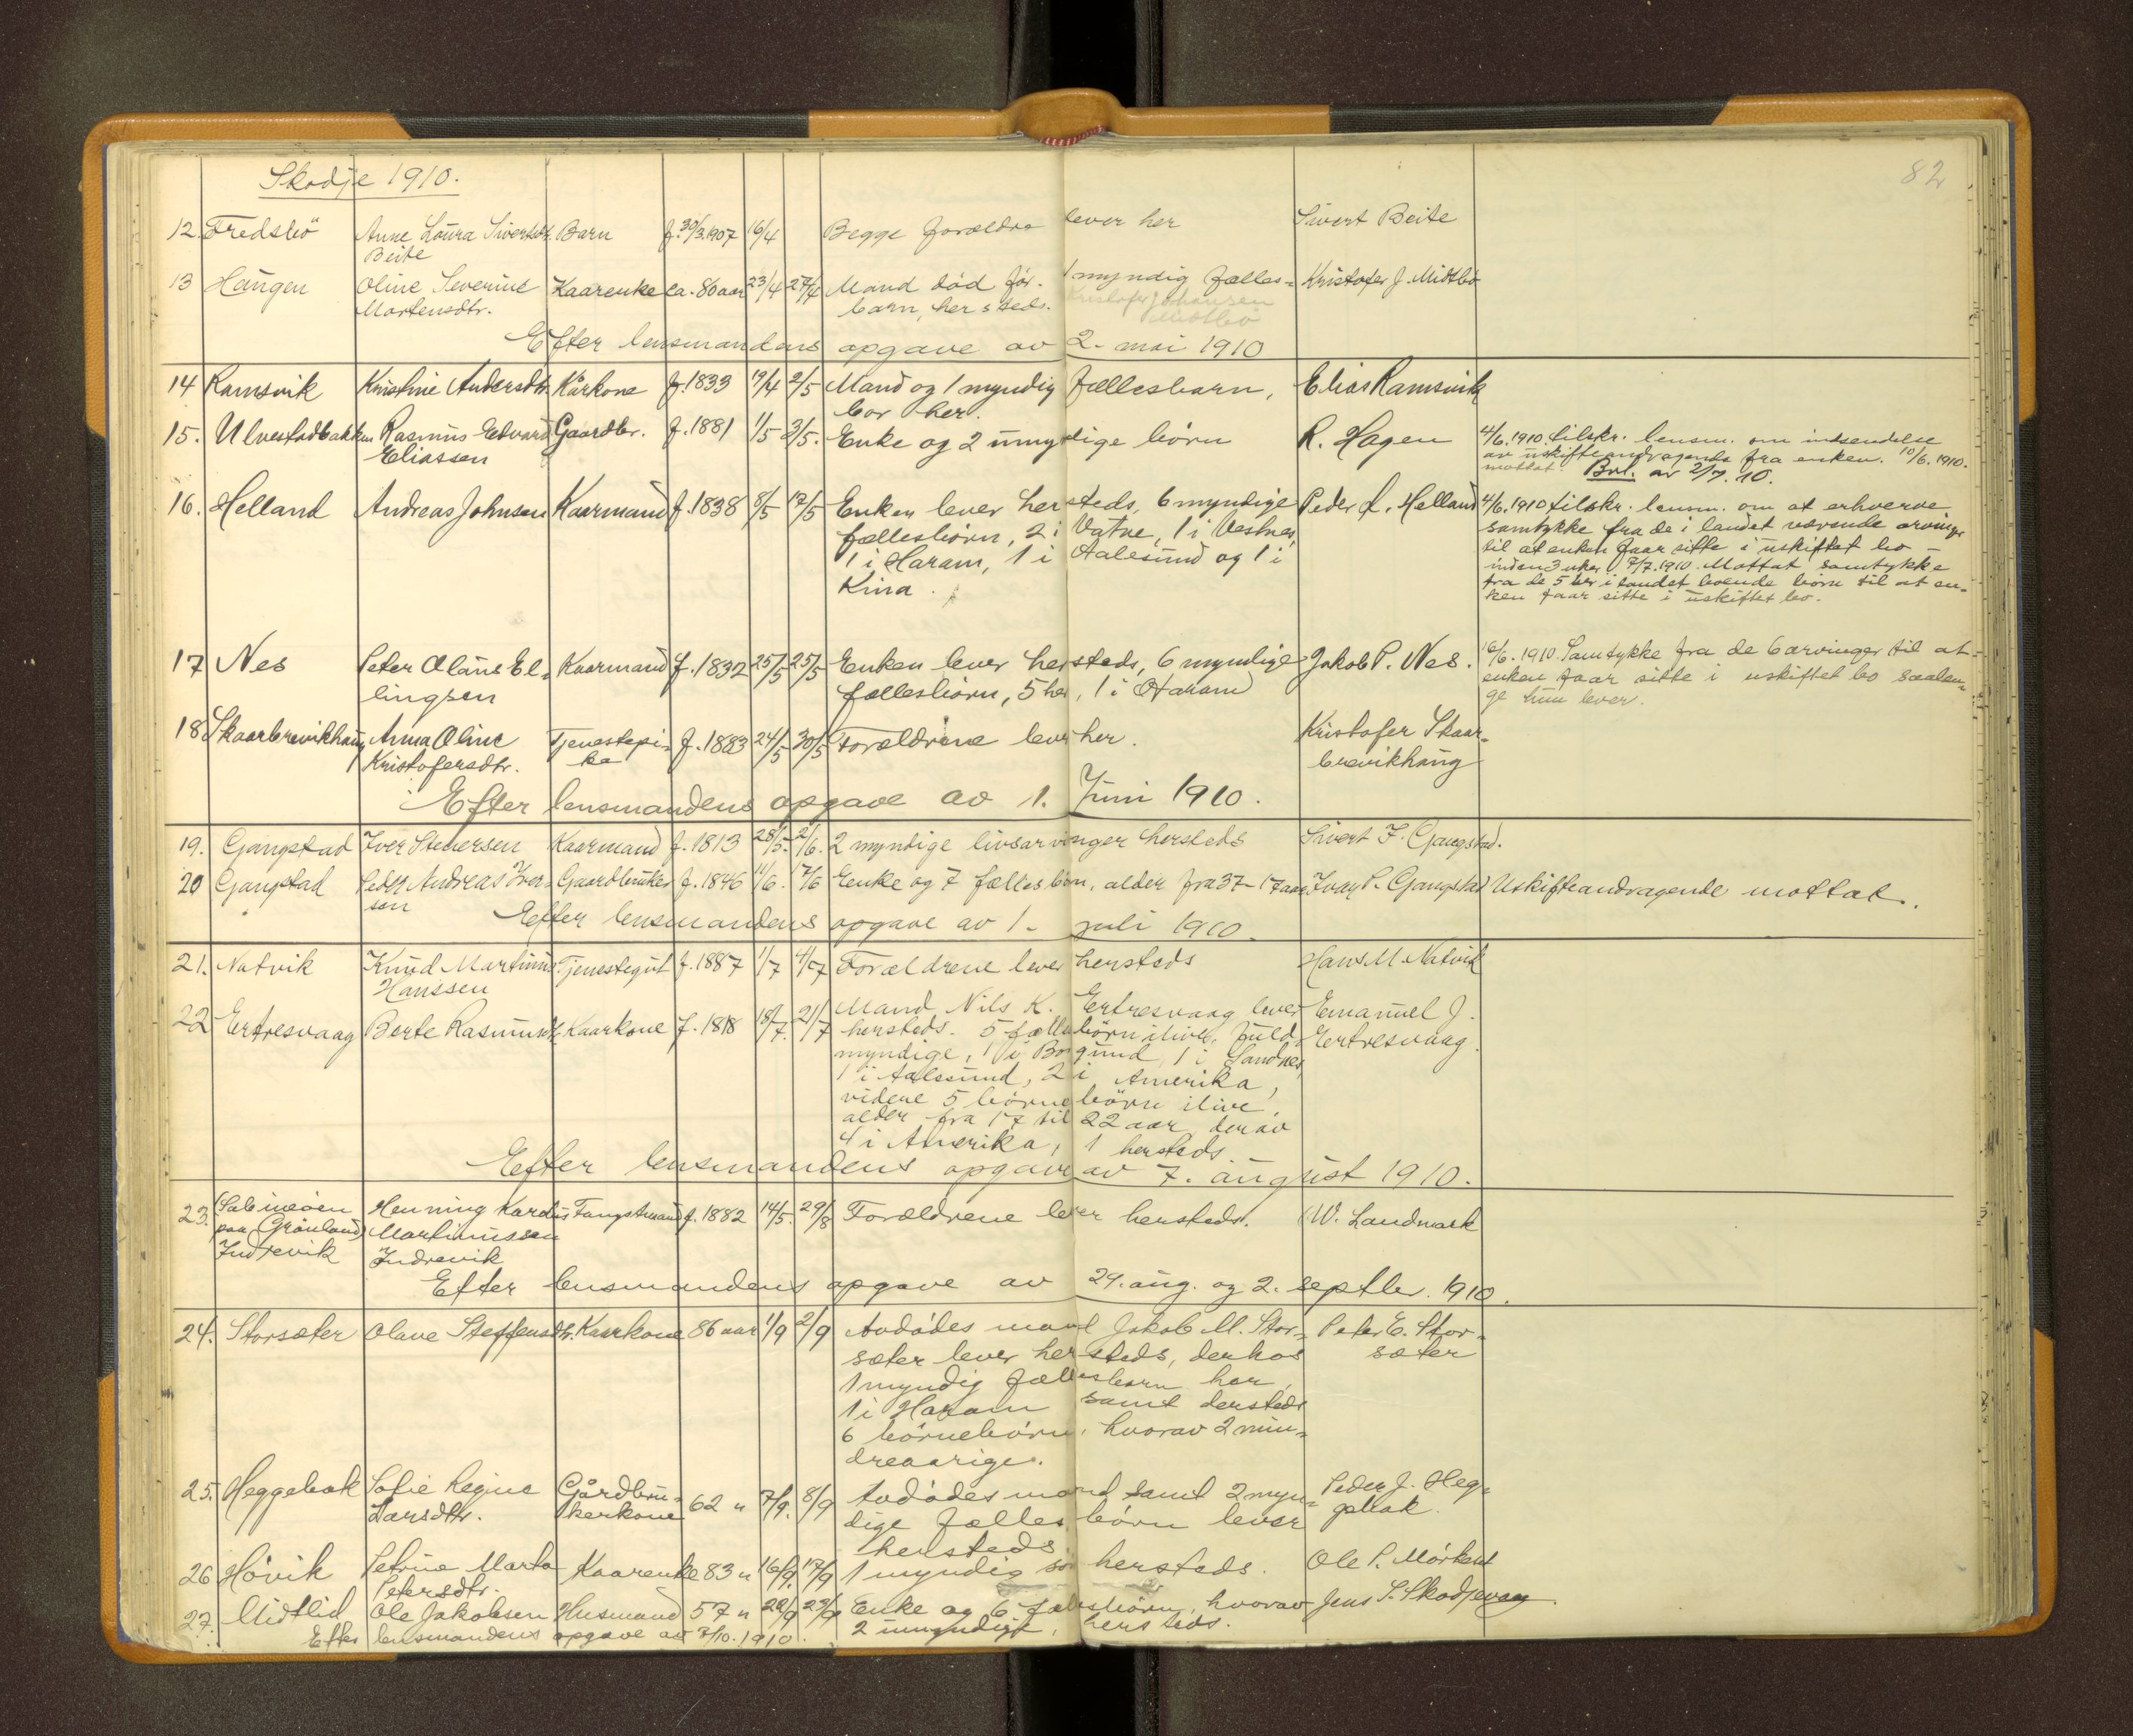 82
Skodje 1910.
12. Fredsbö Anne Loura Sivertsdtr. Barn f. 30/3 1907 16/4 Begge forældre lever her Sivert Beite
Beite
13 Haugen Oline Severine Kaarenke ca. 80 aar 23/4 27/4 Mand död för. 1 myndig fælles= Kristofer J. Midtbö
Martensdtr. barn, hersteds. Kristofer Johansen
Midtbö
Efter lensmandens opgave av 2. mai 1910
14 Ramsvik Kristine Andersdtr. Kårkone f. 1833 19/4 2/5 Mand og 1 myndig fællesbarn, Elias Ramsvik
bor her.
15. Ulvestadbakken Rasmus Edvard Gaardbr. f. 1881 1/5 3/5. Enke og 2 umyndige börn R. Hagen 4/6.1910. tilskr. lensm. om indsendelse
Eliassen av uskifteandragende fra enken. 10/6.1910.
mottat. Bvl. av 2/7.10.
16. Helland Andreas Johnsen Kaarmand f. 1838 8/5 17/5 Enken lever hersteds, 6 myndige Peder L. Helland 4/6.1910 tilskr. lensm. om at erhverve
fællesbörn, 2 i Vatne, 1 i Vestnes, samtykke fra de i landet værende arvinger
1 i Haram, 1 i Aalesund og 1 i til at enken faar sitte i uskiftet bo –
Kina. inden 3 uker. 7/7.1910. Mottat samtykke
fra de 5 her i landet boende börn til at en=
ken faar sitte i uskiftet bo.
17 Nes Peter Olaus El= Kaarmand f. 1832 25/5 25/5 Enken lever hersteds, 6 myndige Jakob P. Nes. 16/6.1910. Samtykke fra de 6 arvinger til at
lingsen fællesbörn, 5 her, 1 i Haram enken faar sitte i uskiftet bo saalen=
ge hun lever.
18 Skaarbrevikhaug Anna Oline Tjenestepi= f. 1883 24/5 30/5 Forældrene lever her. Kristofer Skaar=
Kristofersdtr. ke brevikhaug
Efter lensmandens opgave av 1. Juni 1910.
19. Gangstad Iver Stenersen Kaarmand f. 1813 28/5. 2/6. 2 myndige livsarvinger hersteds Sivert I. Gangstad.
20 Gangstad Peder Andreas Iver= Gaardbruker f. 1846 11/6. 17/6 Enke og 7 fællesbörn, alder fra 37–17 aar Ivar P. Gangstad Uskifteandragende mottat.
sen
Efter lensmandens opgave av 1. juli 1910.
21. Natvik Knud Martinus Tjenestegut f. 1887 1/7 4/7 Forældrene lever hersteds Hans M. Natvik
Hanssen
22 Ertresvaag Berte Rasmusdtr. Kaarkone f. 1818 18/7. 21/7 Mand Nils K. Ertresvaag lever Emanuel J.
hersteds. 5 fællesbörn ilive, fuld= Ertresvaag.
myndige, 1 i Borgund, 1 i Sandnes,
1 i Aalesund, 2 i Amerika,
videre 5 börnebörn ilive,
alder fra 17 til 22 aar, derav
4 i Amerika, 1 hersteds.
Efter lensmandens opgave av 7. august 1910.
23. (Sabineöen Henning Kardus Fangstmand f. 1882 14/5. 29/8 Forældrene lever hersteds. (W. Landmark
paa Grönland) Martinussen
Indrevik Indrevik
Efter lensmandens opgave av 29. aug. og 2. septbr. 1910.
24. Storsæter Olave Steffensdtr. Kaarkone 86 aar 1/9 2/9 Avdödes mand Jakob M. Stor= Peter E. Stor=
sæter lever hersteds, derhos sæter
1 myndig fællesbarn her,
1 i Haram samt dersteds
6 börnebörn, hvorav 2 min=
dreaarige.
25. Heggebak Sofie Regine Gårdbru= 62 " 7/9. 8/9 Avdödes mand samt 2 myn= Peder J. Heg=
Larsdtr. kerkone dige fælles börn lever gebak.
hersteds.
26 Hövik Petrine Marta Kaarenke 83 " 16/9. 17/9 1 myndig sön hersteds. Ole P. Mörkest
Petersdtr.
27. Midtlid Ole Jakobsen Husmand 57 " 28/9 29/9 Enke og 6 fællesbörn, hvorav Jens S. Skodjevaag
2 umyndige, hersteds.
Efter lensmandens opgave av 3/10. 1910.